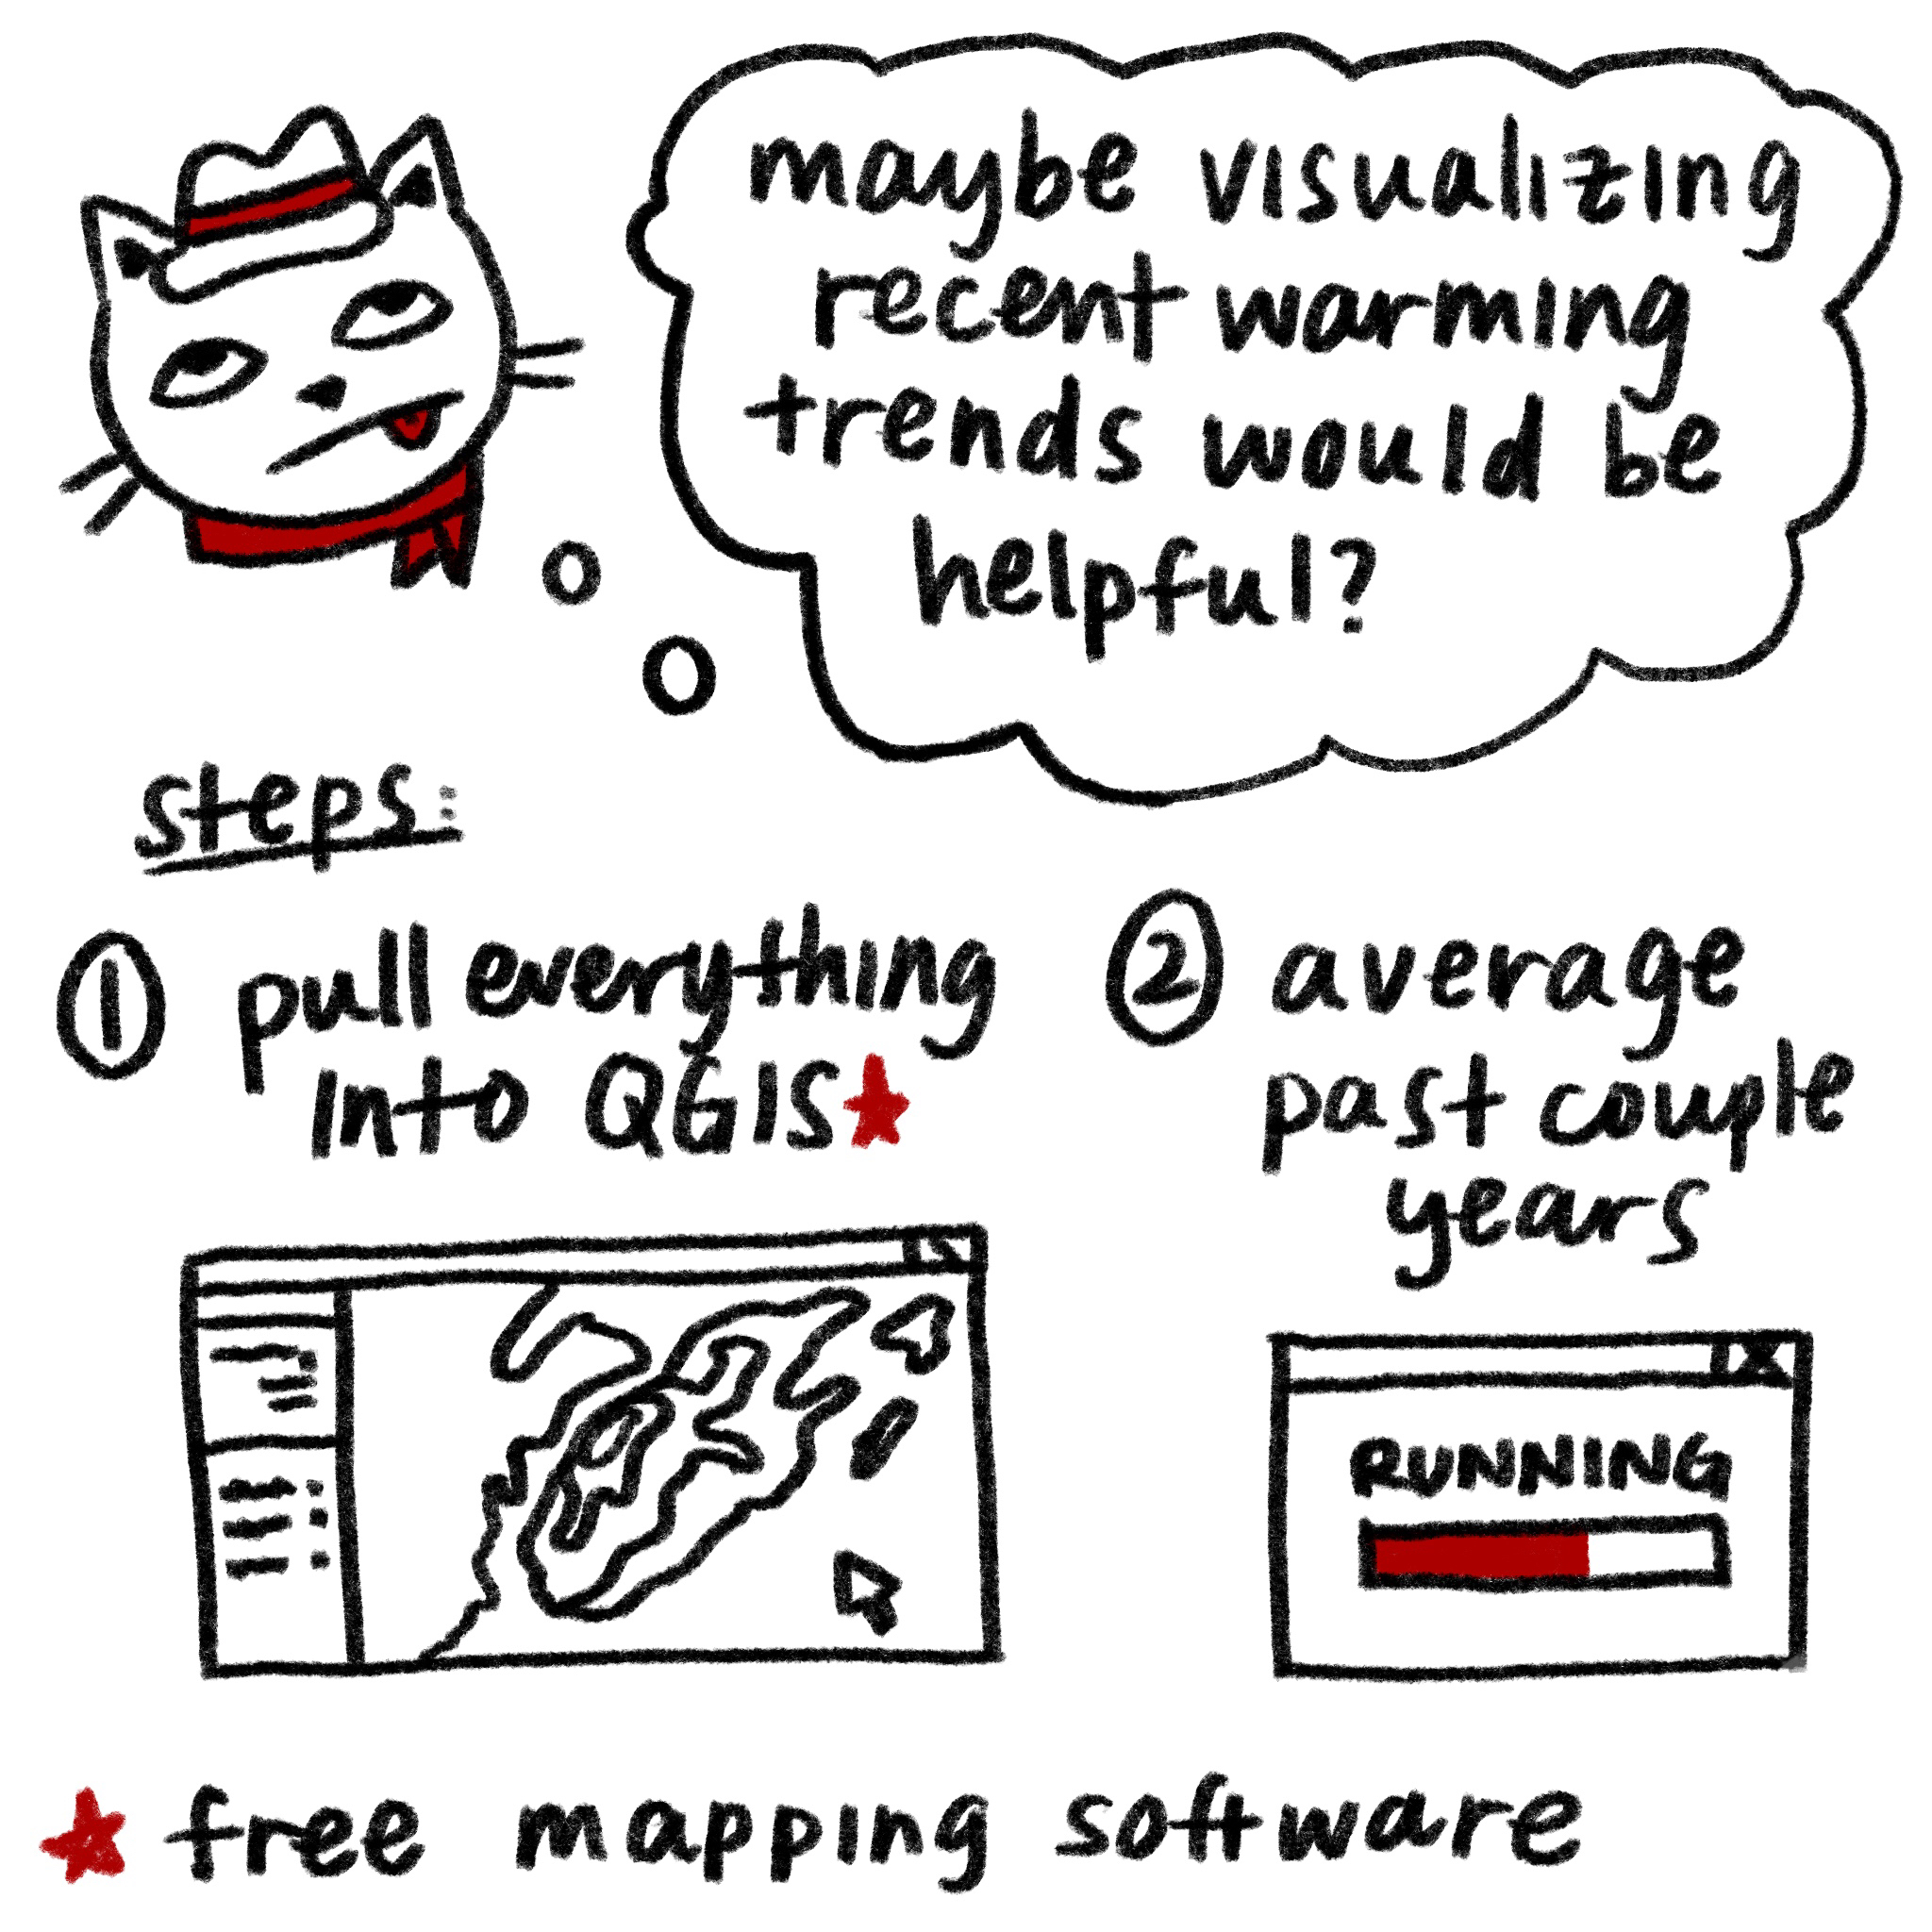 maybe visualizing
recent warming
trends would be
helpful?
steps:
1 pull everything
into QGIS★
2 average
past couple
years
RUNNING
★ free mapping software